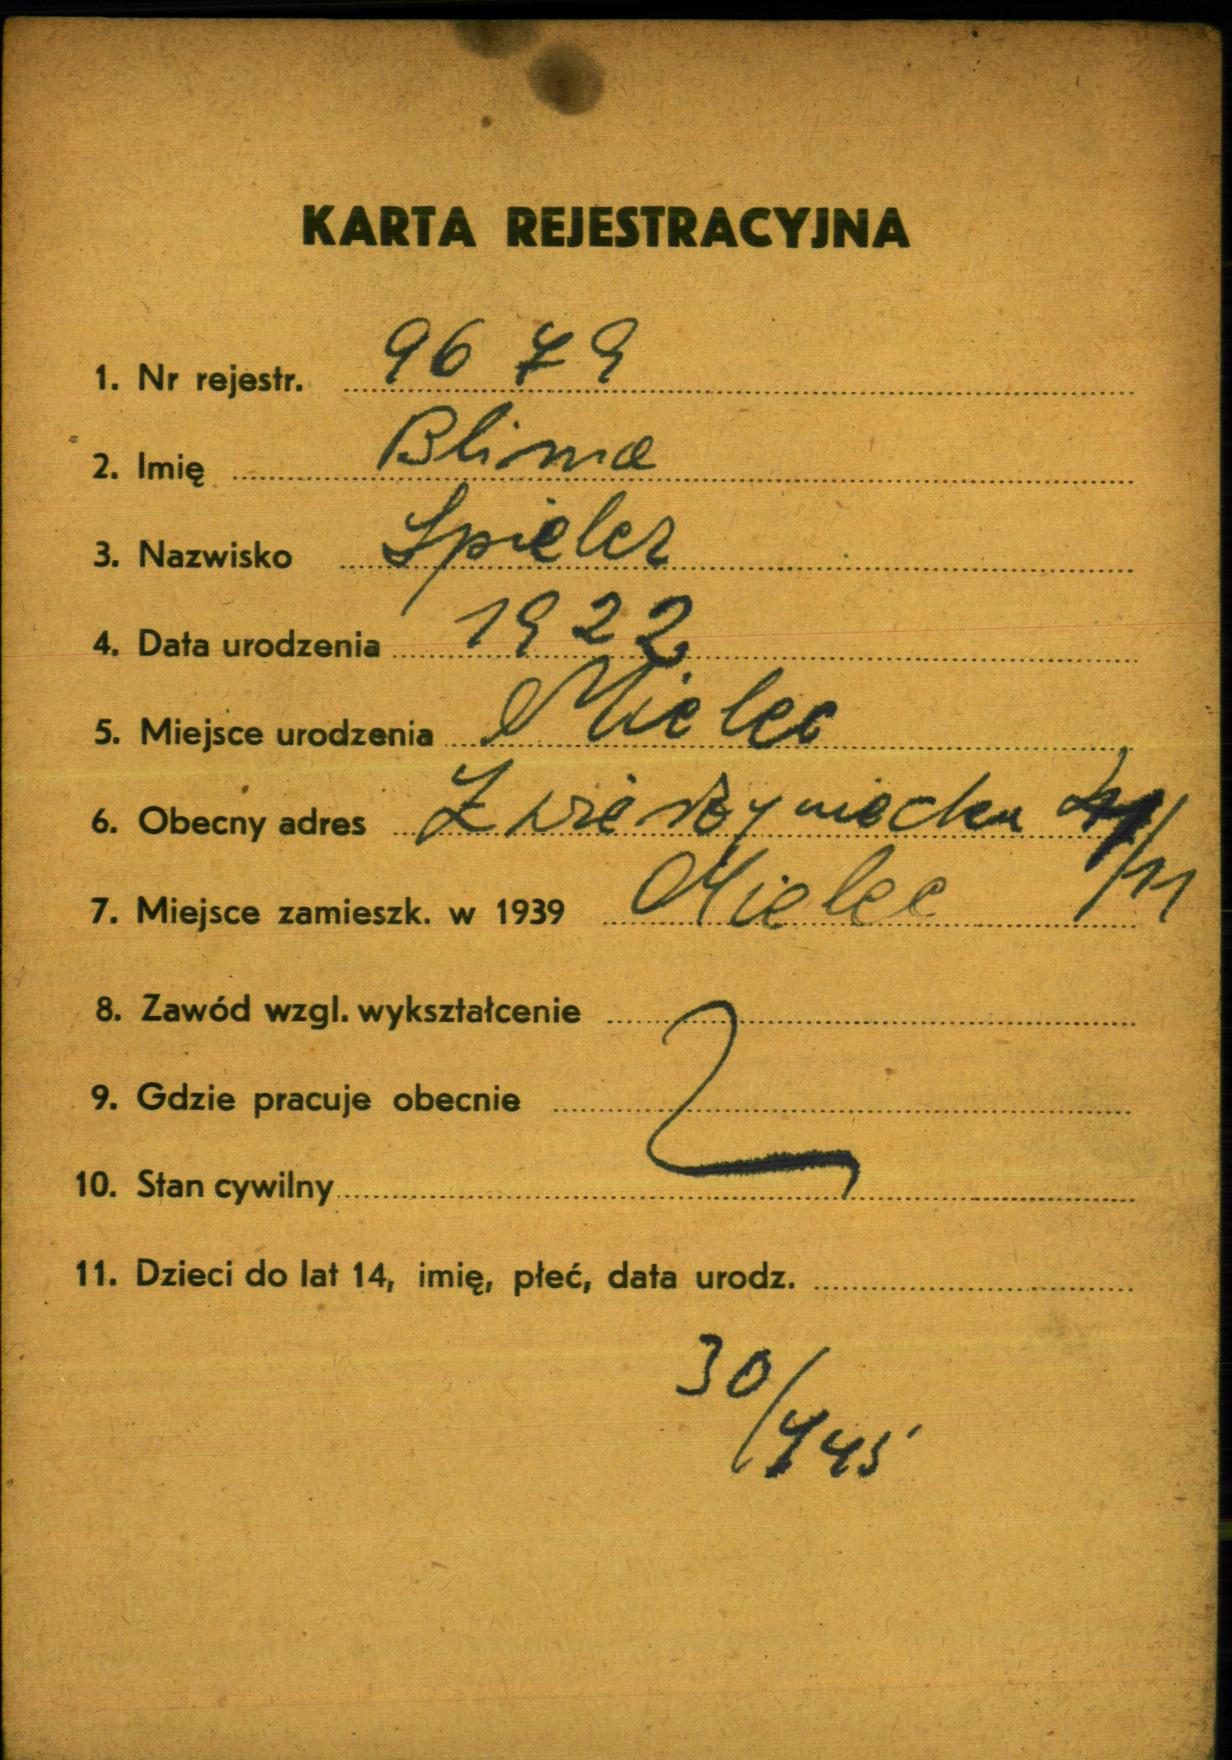 KARTA REJESTRACYJNA
1. Nr rejestr. 9679
2. Imię Blima
3. Nazwisko Spieler
4. Data urodzenia 1922
5. Miejsce urodzenia Mielec
6. Obecny adres Zwierzyniecka /11
7. Miejsce zamieszk. w 1939 Mielec
8. Zawód wzgl. wykształcenie
9. Gdzie pracuje obecnie
10. Stan cywilny
11. Dzieci do lat 14, imię, płeć, data urodz.
30/
45